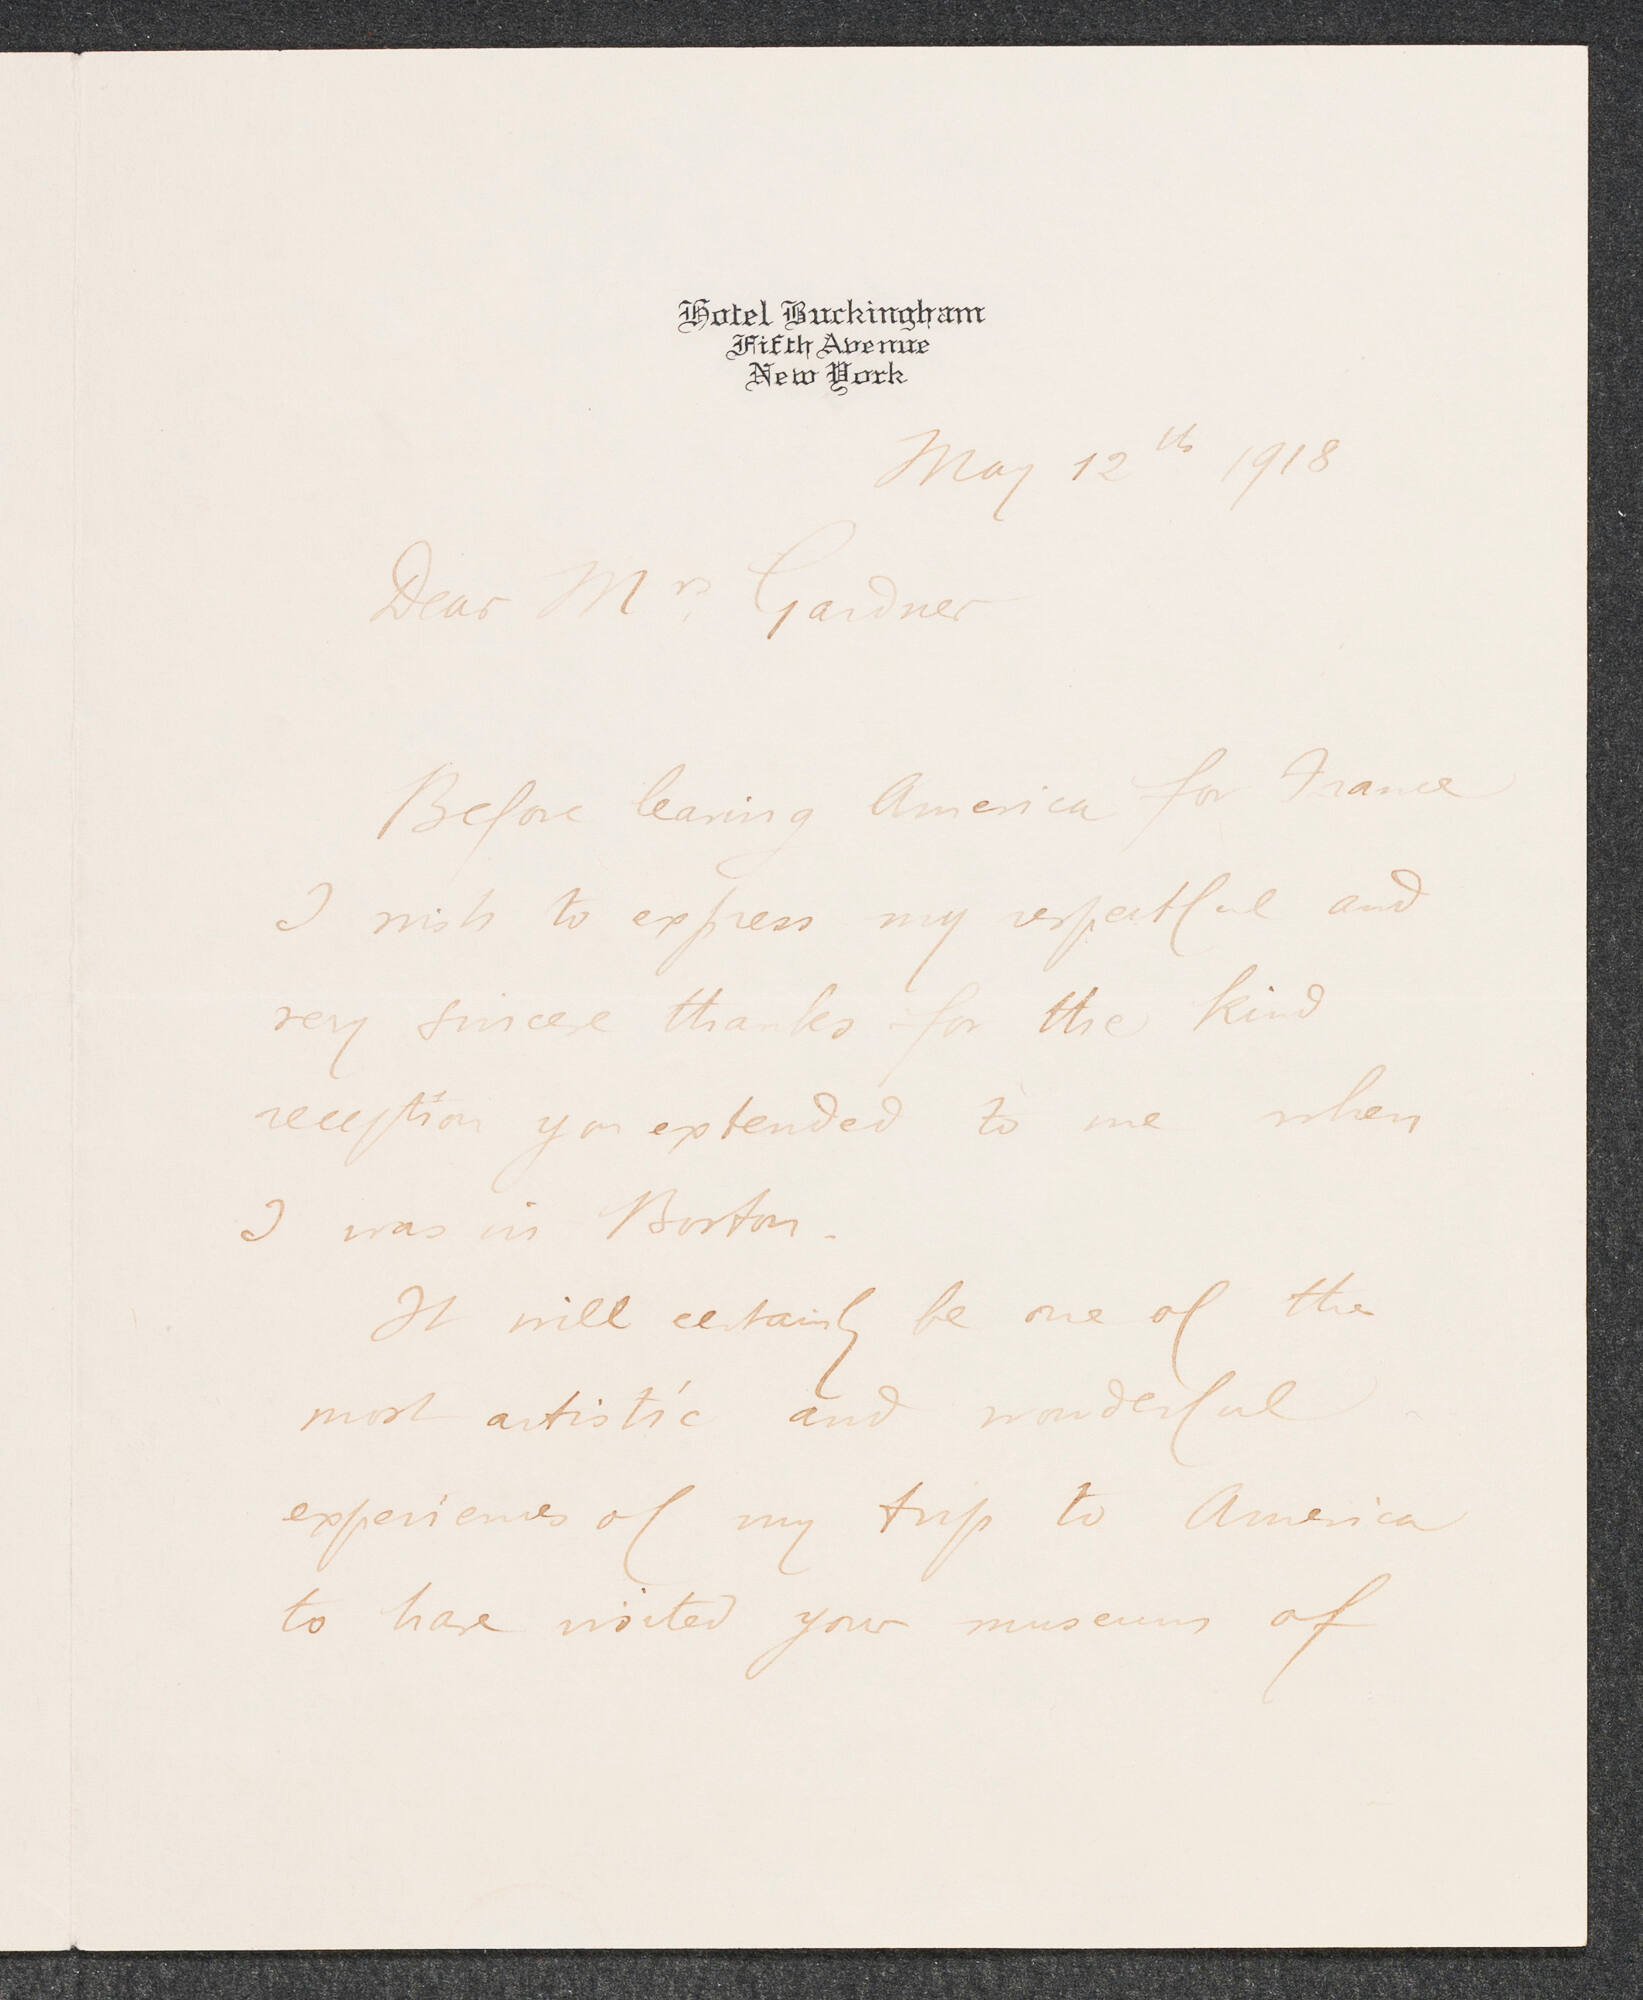 Hotel Buckingham
Fifth Avenue
New York
May 12th 1918
Dear Mrs. Gardner
Before leaving America for France
I wish to express my respectful and
very sincere thanks for the kind
reception you extended to me when
I was in Boston.
It will certainly be one of the
most artistic and wonderful
experiences of my trip to America
to have visited your museum of